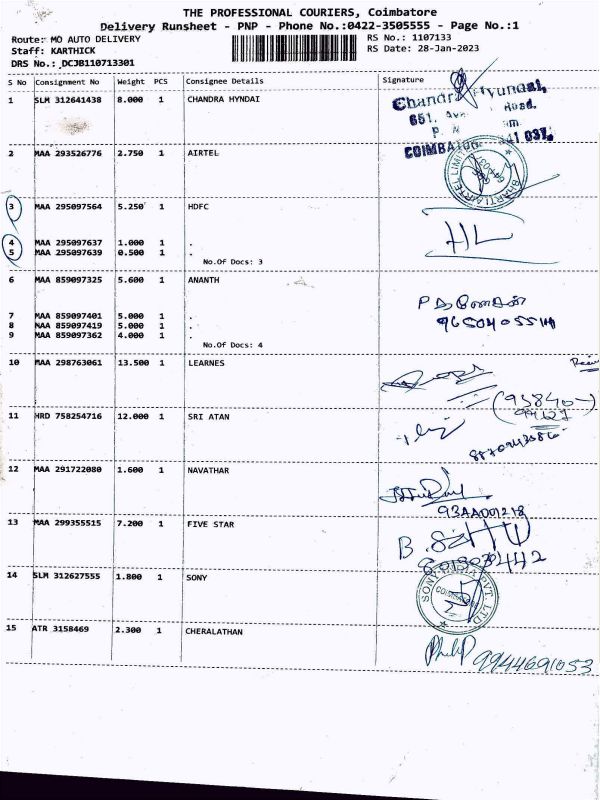 THE PROFESSIONAL COURIERS, Coimbatore
Delivery Runsheet - PNP - Phone No.:0422-3505555 - Page No.:1
Route: MO AUTO DELIVERY RS No.: 1107133
Staff: KARTHICK RS Date: 28-Jan-2023
DRS No.: DCJB110713301
S No Consignment No Weight PCS Consignee Details Signature
1 SLM 312641438 8.000 1 CHANDRA HYNDAI
Chandra Hyundai,
651, Road.
COIMBATO 41 037.
2 MAA 293526776 2.750 1 AIRTEL
BHARTI AIRTEL LIMIT
3 MAA 295097564 5.250 1 HDFC
4 MAA 295097637 1.000 1 .
5 MAA 295097639 0.500 1 .
No.Of Docs: 3
6 MAA 859097325 5.600 1 ANANTH
7 MAA 859097401 5.000 1 .
8 MAA 859097419 5.000 1 .
9 MAA 859097362 4.000 1 .
No.Of Docs: 4
10 MAA 298763061 13.500 1 LEARNES
11 HRD 758254716 12.000 1 SRI ATAN
12 MAA 291722080 1.600 1 NAVATHAR
93AA001218
13 MAA 299355515 7.200 1 FIVE STAR
14 SLM 312627555 1.800 1 SONY
SONY INDIA PVT. LTD
15 ATR 3158469 2.300 1 CHERALATHAN
Philip 9944691053